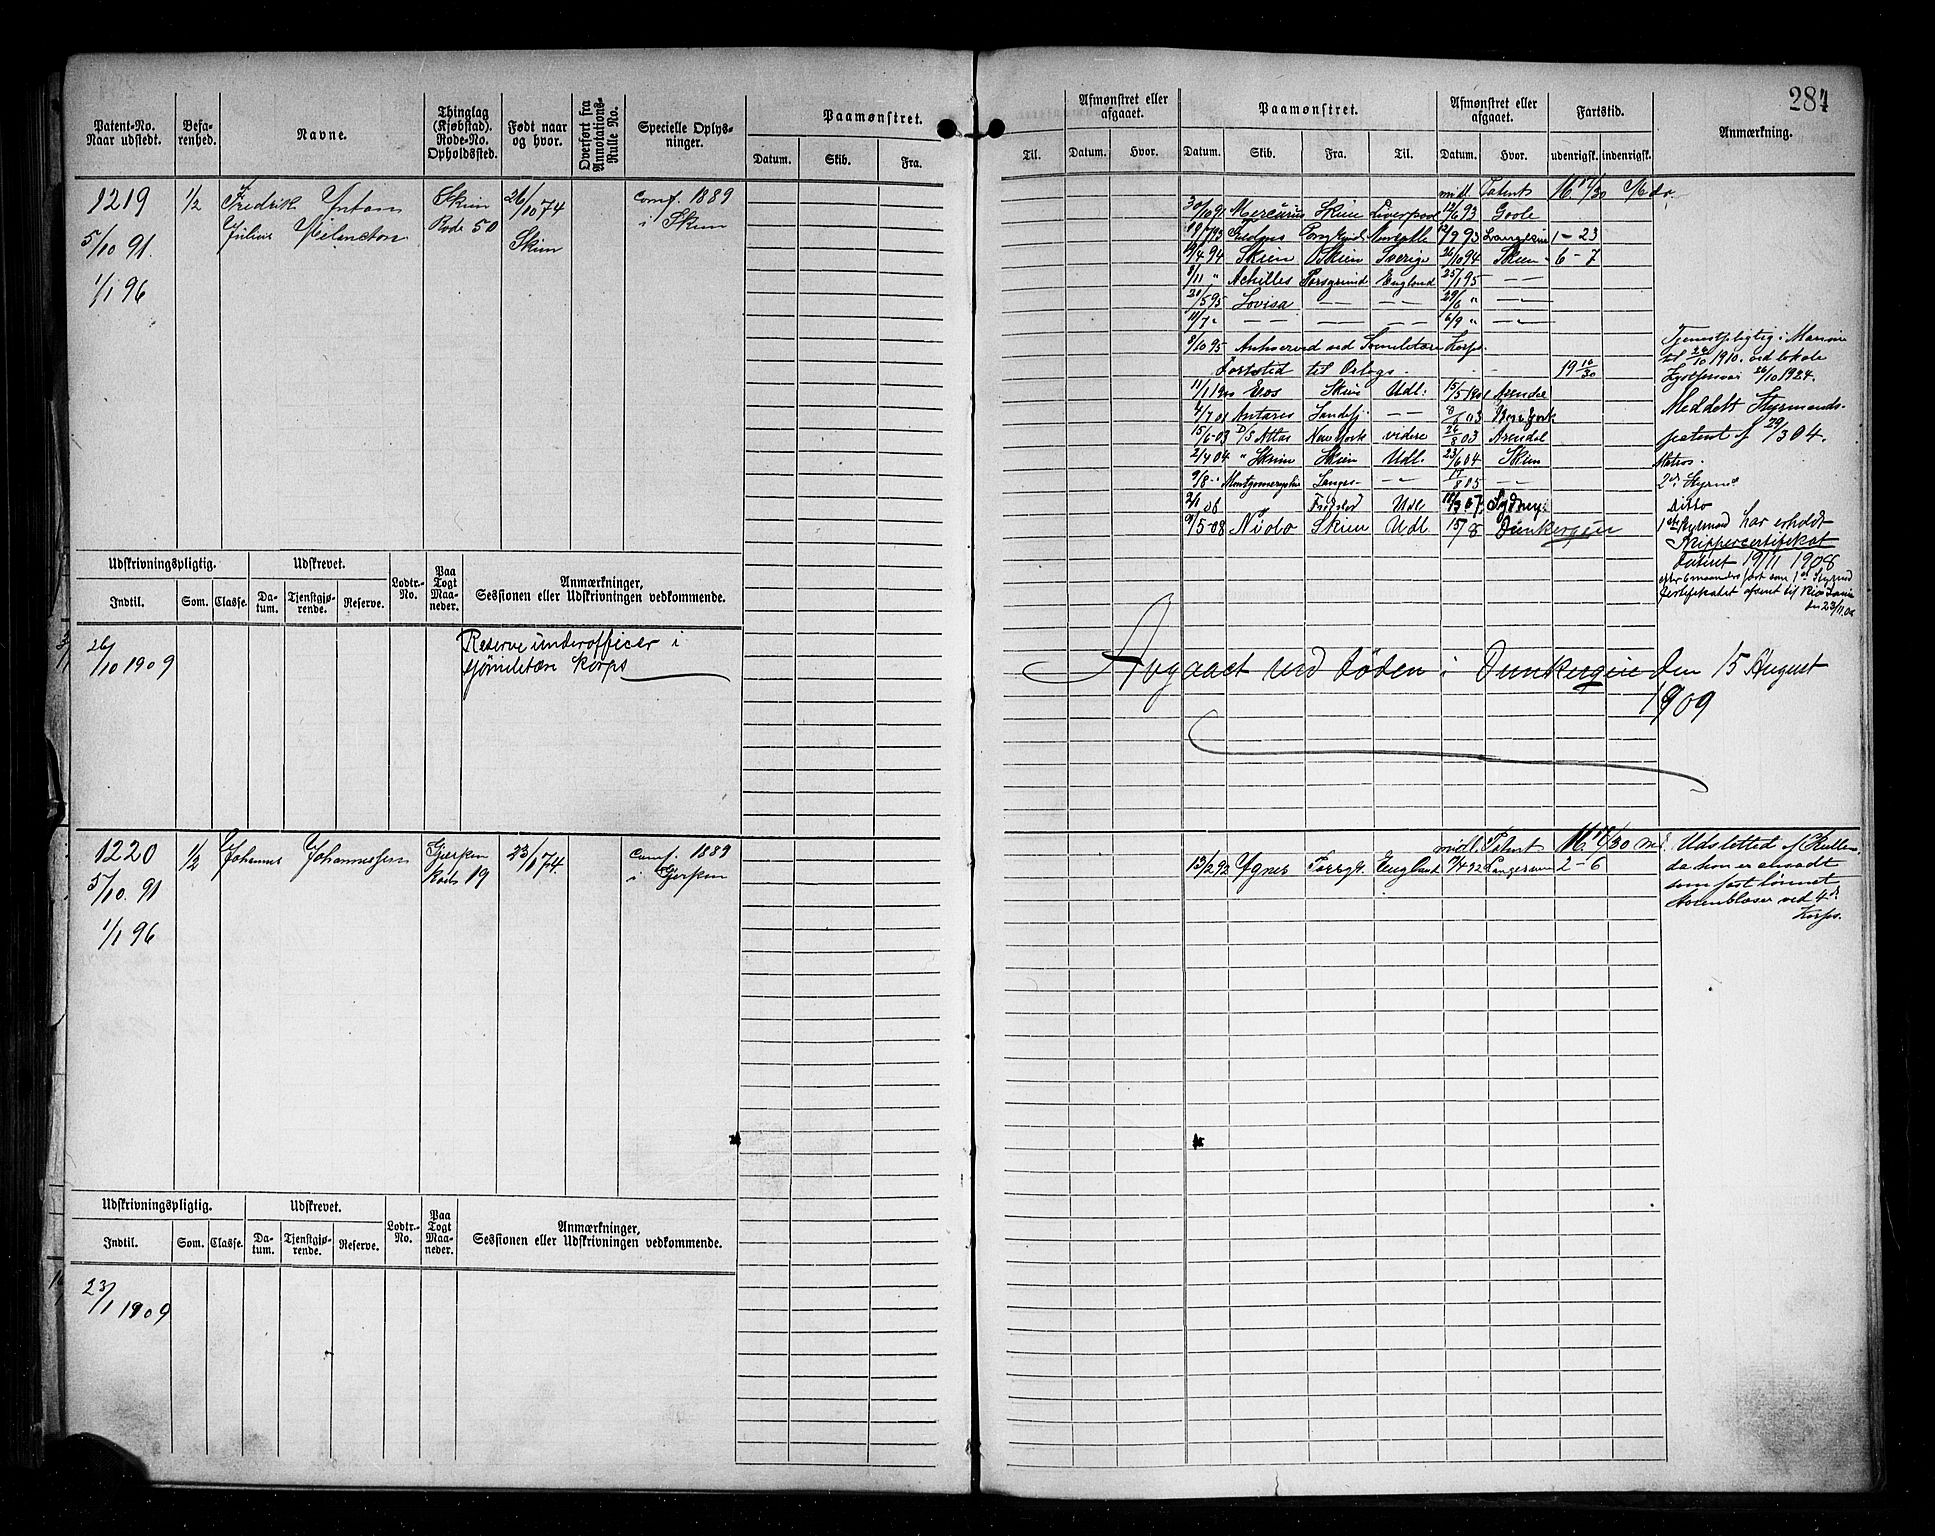 284
Patent-No. Naar udstedt.
Befarenhed.
Navne.
Thinglag (Kjøbstad). Rode-No. Opholdssted.
Født naar og hvor.
Overført fra Annotations-Rulle No.
Specielle Oplysninger.
Paamønstret.
Datum. Skib. Fra.
Til.
Afmønstret eller afgaaet.
Datum. Hvor.
Paamønstret.
Datum. Skib. Fra. Til.
Afmønstret eller afgaaet.
Datum. Hvor.
Fartstid.
udenrigsk. indenrigsk.
Anmærkning.
1219 1/2 Fredrik Anton Skien 26/10 74 Conf. 1889
Julius Melancton Rode 50 Skien i Skien
5/10 91.
1/1 96
midl. Patent 16 17/30 M do.
30/10 91 Mercurius Skien Liverpool 12/6 93 Goole
19/7 93 Newcastle 12/9 93 Langesund 1 - 23
19/4 94 Skien Skien Sverige 26/10 94 Skien 6 - 7
8/11 " Achilles Porsgrund England 25/1 95 — —
20/5 95 Lovisa — — — — 29/6 " — —
11/7 " — — — — — — 6/9 " — —
8/10 95 ved Korps.
Fartstid til Orlogs 19 16/30
11/1 1900 Eros Skien Udl: 15/5 1901 Arendal
4/7 01 Antares Sandefj. — — 03 New York
15/6 03 D/S Atlas New York videre 26/8 03 Arendal
2/4 04 " Skien Skien Udl. 23/6 04 Skien
9/8 - Langes- — — 17/8 05 — —
2/1 06 Udl 07 Sydney
9/5 08 Skien Udl 15/8 Dunkerque
Tjenestpligtig i Marine
til 26/10 1910. ved lokale
Kystforsvar 26/10 1924.
Meddelt Styrmands-
patent 29/3 04.
Matros.
2den Styrm.
Ditto
1ste Styrmand har erholdt
Skippercertifikat
Datert 19/11 1908
efter 6 maaneders fart som 1st Styrmd
Certifikatet afsent til
den 23/11 08
Udskrivningspligtig.
Indtil. Som. Classe.
Udskrevet.
Datum. Tjenstgjørende. Reserve.
Lodtr.-No.
Paa Togt Maaneder.
Anmærkninger, Sessionen eller Udskrivningen vedkommende.
26/10 1909
Reserve underofficer i
Sjømilitære korps
Avgaaet ved døden i Dunkerque den 15 August
1909
1220 1/2 Johannes Johannessen Gjerpen 23/1 74. Conf. 1889
Rode 19 i Gjerpen
5/10. 91
1/1 96
midl. Patent 16 17/30 Md.
13/2 92 Agnes Porsgr. England 92 Langesund 2 - 6
Udsletted af Rullen
da han er ansadt
som fast lønnet
Hornblaser ved 4de
Korps.
Udskrivningspligtig.
Indtil. Som. Classe.
Udskrevet.
Datum. Tjenstgjørende. Reserve.
Lodtr.-No.
Paa Togt Maaneder.
Anmærkninger, Sessionen eller Udskrivningen vedkommende.
23/1 1909